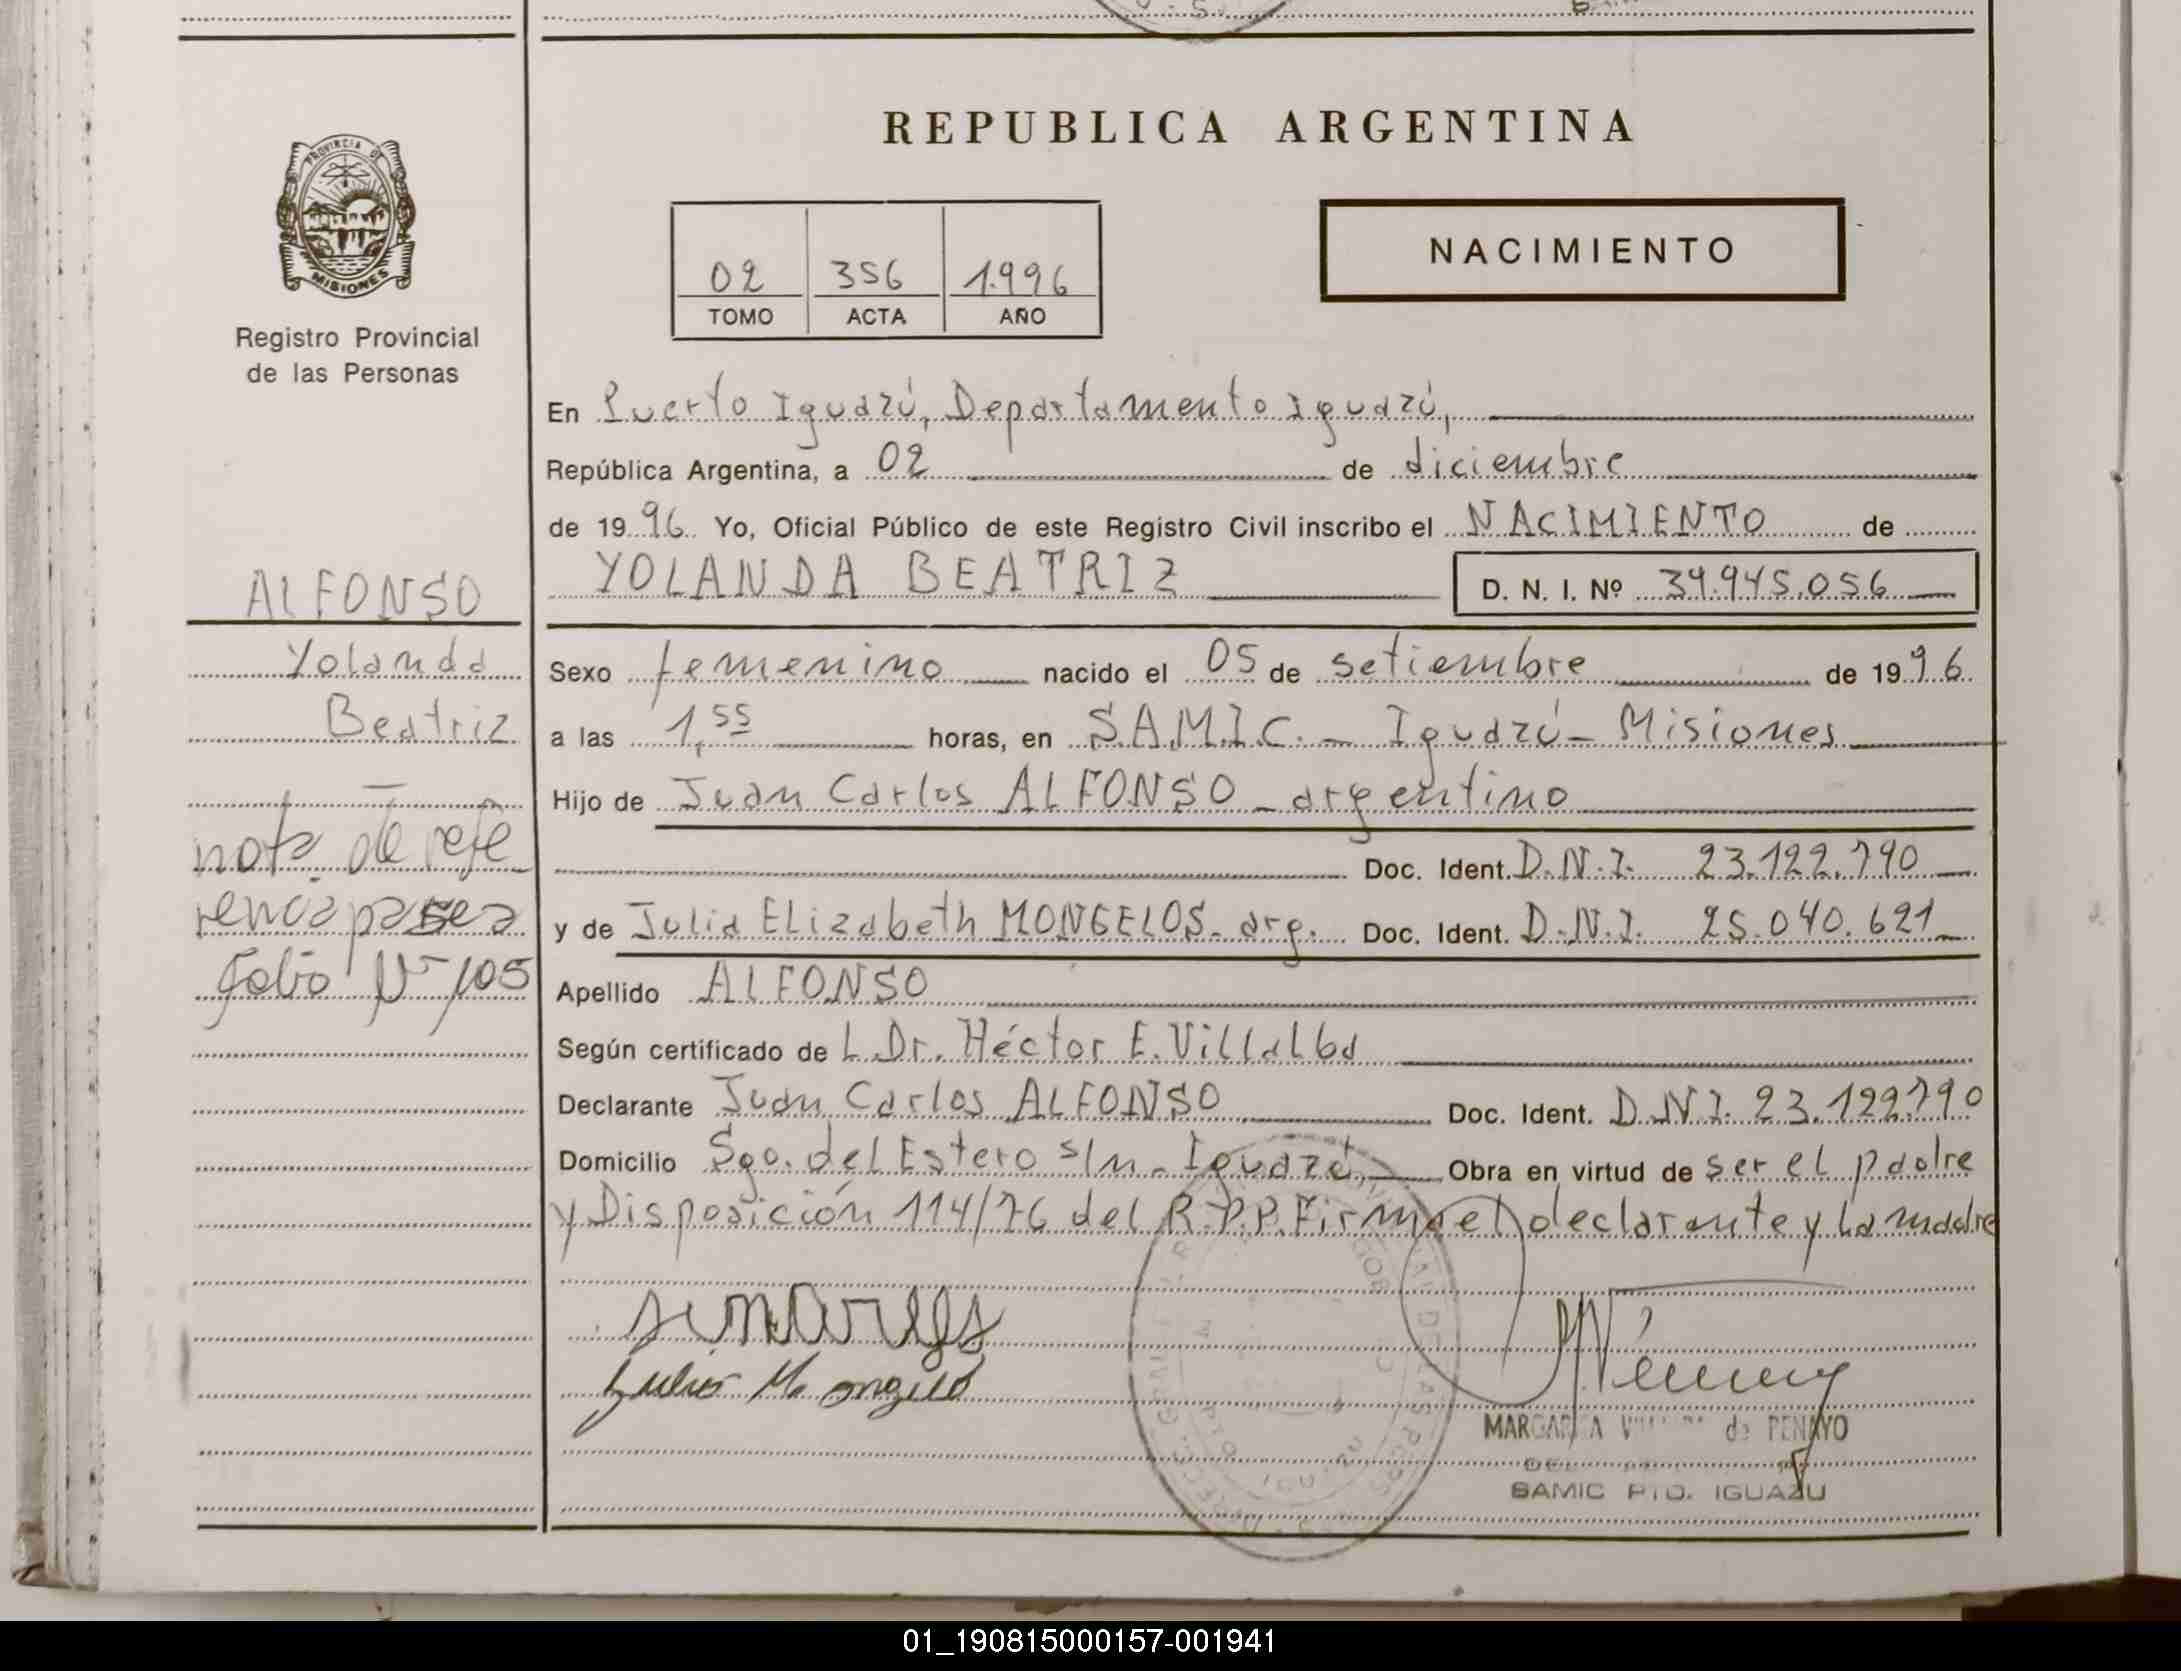 REPUBLICA ARGENTINA
PROVINCIA DE
MISIONES
Registro Provincial
de las Personas
NACIMIENTO
02 356 1.996
TOMO ACTA AÑO
En Puerto Iguazú, Departamento Iguazú,
República Argentina, a 02 de diciembre
de 1996 Yo, Oficial Público de este Registro Civil inscribo el NACIMIENTO de
YOLANDA BEATRIZ D. N. I. Nº 39.945.056
ALFONSO
Yolanda
Beatriz
nota de refe
rencia pasea
folio Nº 105
Sexo femenino nacido el 05 de setiembre de 1996
a las 1,55 horas, en S.A.M.I.C. - Iguazú - Misiones
Hijo de Juan Carlos ALFONSO - argentino
Doc. Ident. D.N.I. 23.122.790
y de Julia Elizabeth MONGELOS - arg. Doc. Ident. D.N.I. 25.040.621
Apellido ALFONSO
Según certificado de L Dr. Héctor E. Villalba
Declarante Juan Carlos ALFONSO Doc. Ident. D.N.I. 23.122.790
Domicilio Sgo. del Estero s/n - Iguazú, Obra en virtud de ser el padre
y Disposición 114/76 del R.P.P. Firma el declarante y la madre
MARGARITA de PENAYO
SAMIC PTO. IGUAZU
01_190815000157-001941